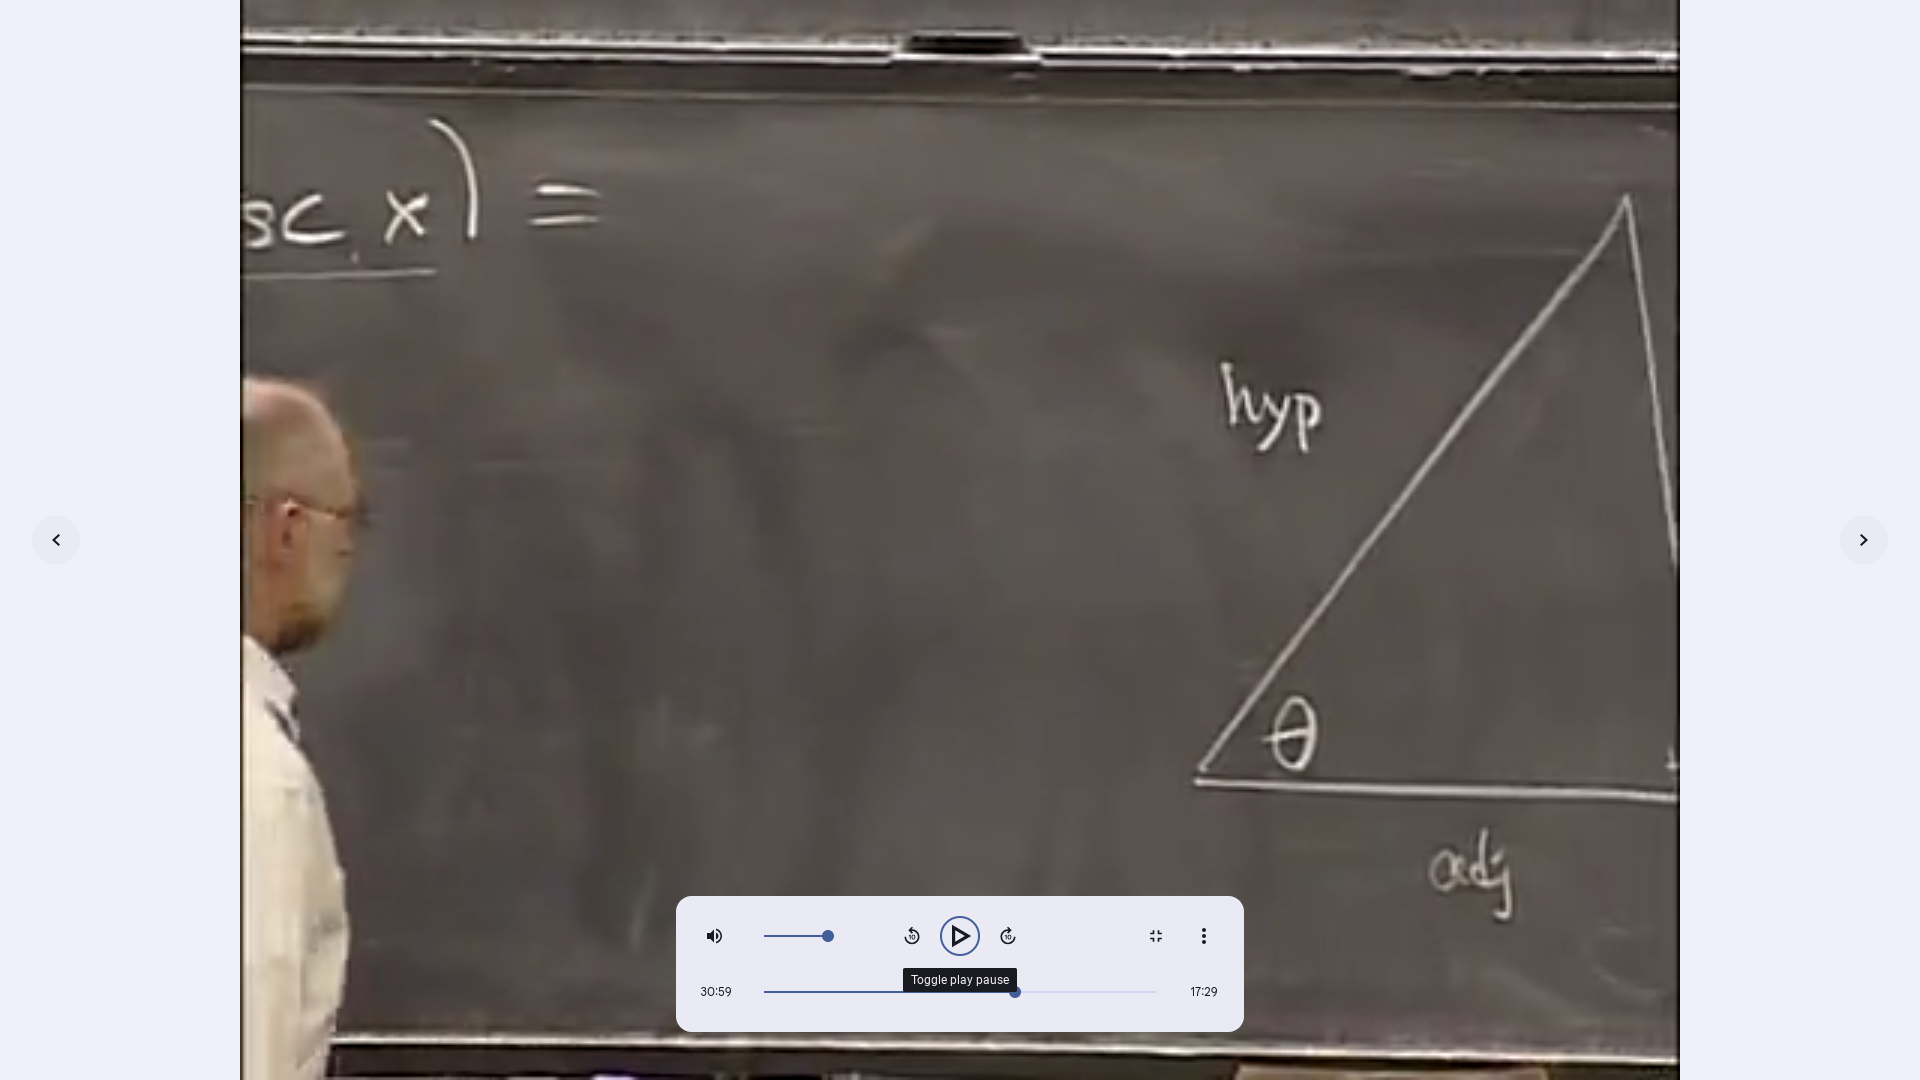 sc x) =
hyp
θ
adj
10
10
Toggle play pause
30:59
17:29